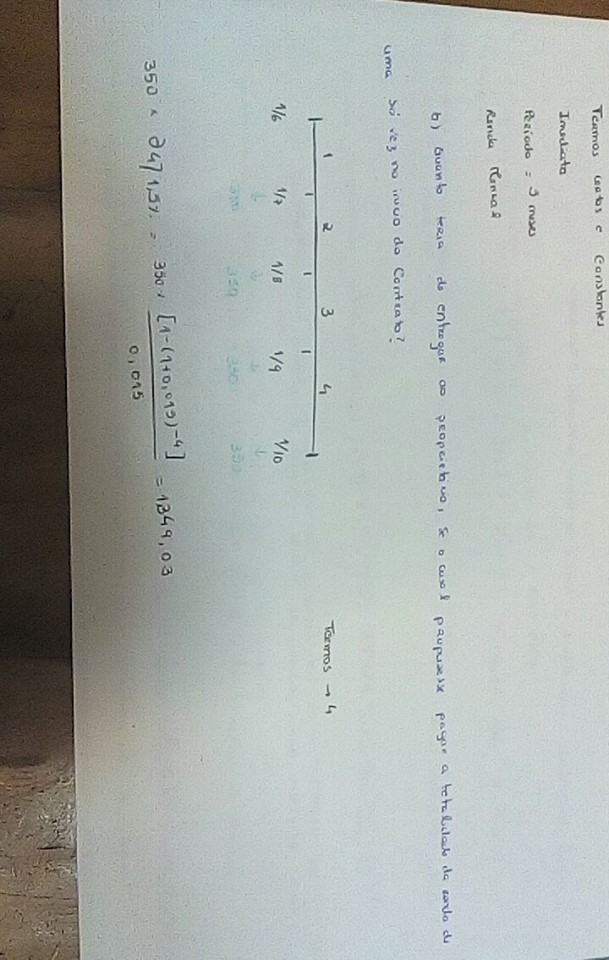 Termos certos e Constantes
Imediata
Período = 3 meses
Renda Mensal
b) Quanto teria de entregar ao proprietário, se o casal propusesse pagar a totalidade da renda de
uma só vez no início do Contrato?
1 2 3 4
Termos → 4
1/6 1/7 1/8 1/9 1/10
↓ ↓ ↓ ↓
350 350 350 350
350 × a4˥1,5% = 350 × [1-(1+0,015)^-4] / 0,015 = 1349,03